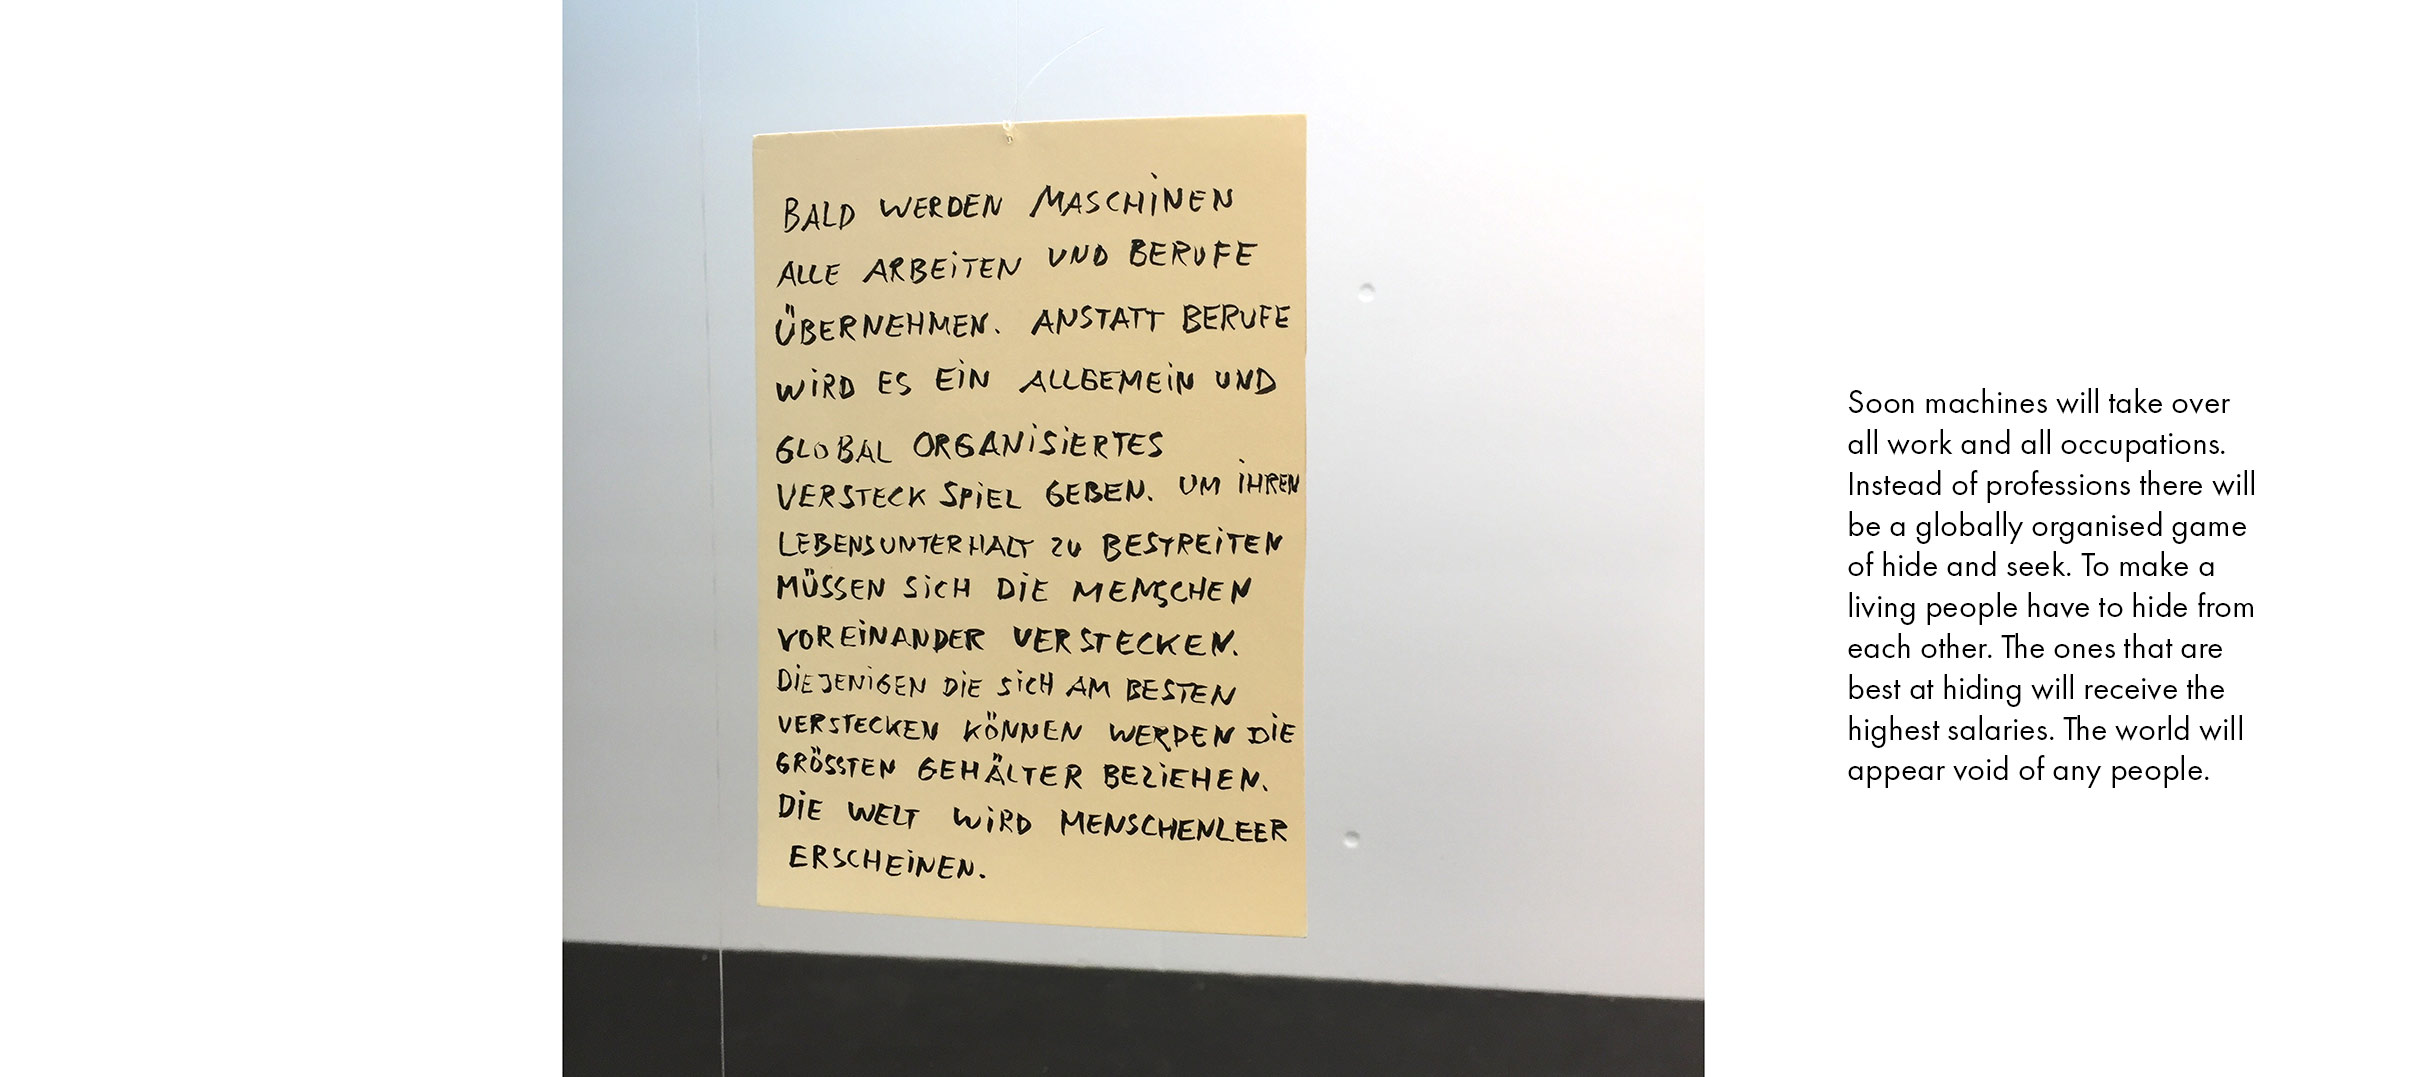 BALD WERDEN MASCHINEN
ALLE ARBEITEN UND BERUFE
ÜBERNEHMEN. ANSTATT BERUFE
WIRD ES EIN ALLGEMEIN UND
GLOBAL ORGANISIERTES
VERSTECK SPIEL GEBEN. UM IHREN
LEBENSUNTERHALT ZU BESTREITEN
MÜSSEN SICH DIE MENSCHEN
VOREINANDER VERSTECKEN.
DIEJENIGEN DIE SICH AM BESTEN
VERSTECKEN KÖNNEN WERDEN DIE
GRÖSSTEN GEHÄLTER BEZIEHEN.
DIE WELT WIRD MENSCHENLEER
ERSCHEINEN.
Soon machines will take over
all work and all occupations.
Instead of professions there will
be a globally organised game
of hide and seek. To make a
living people have to hide from
each other. The ones that are
best at hiding will receive the
highest salaries. The world will
appear void of any people.